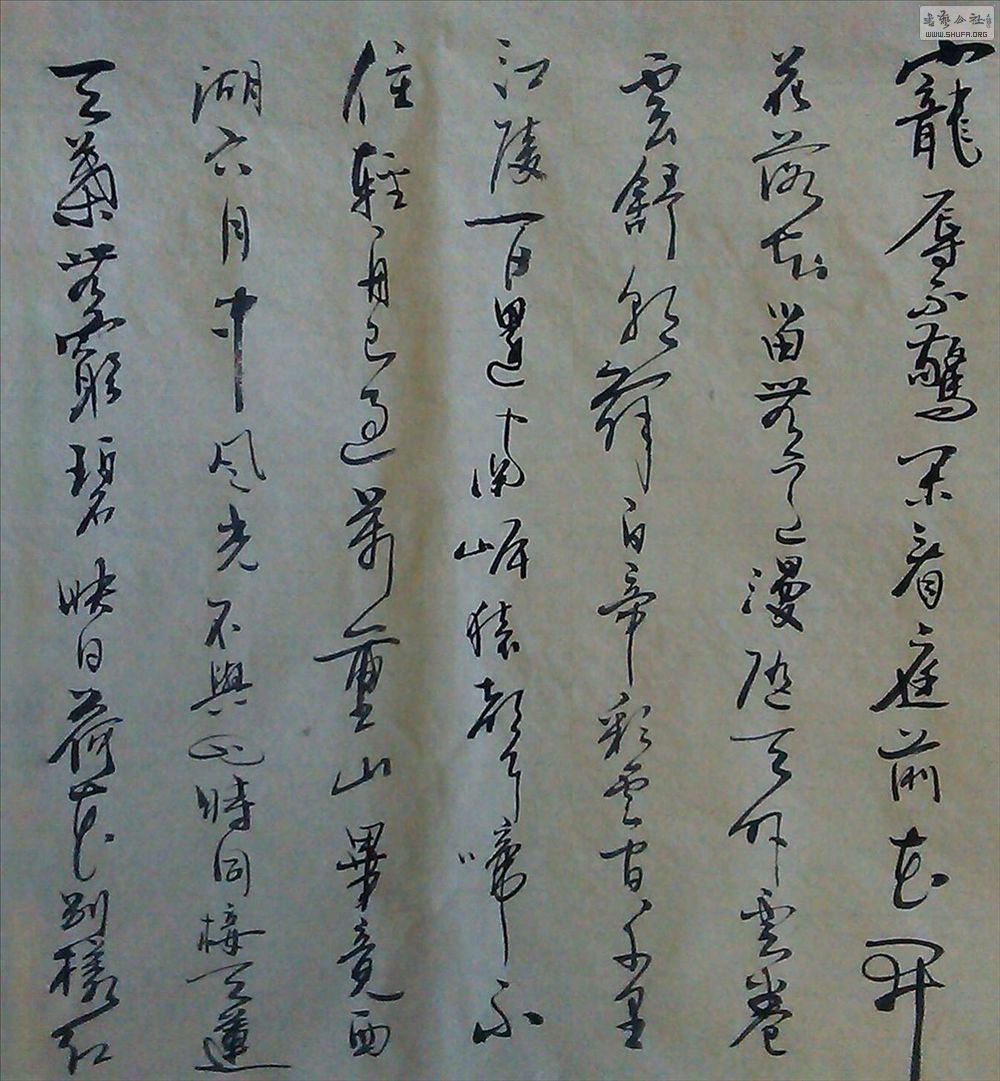 寵辱不驚閑看庭前花開
花落去留無意漫隨天外雲卷
雲舒朝辭白帝彩雲間千里
江陵一日還兩岸猿聲啼不
住輕舟已過萬重山畢竟西
湖六月中风光不與四時同接天蓮
天葉無窮碧映日荷花別樣紅
書藝公社
WWW.SHUFA.ORG